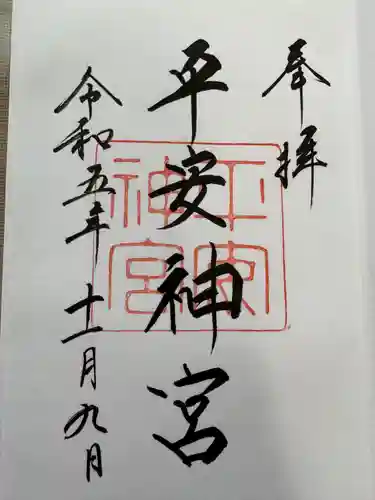 奉拝
平安神宮
平安神宮
令和五年十一月九月